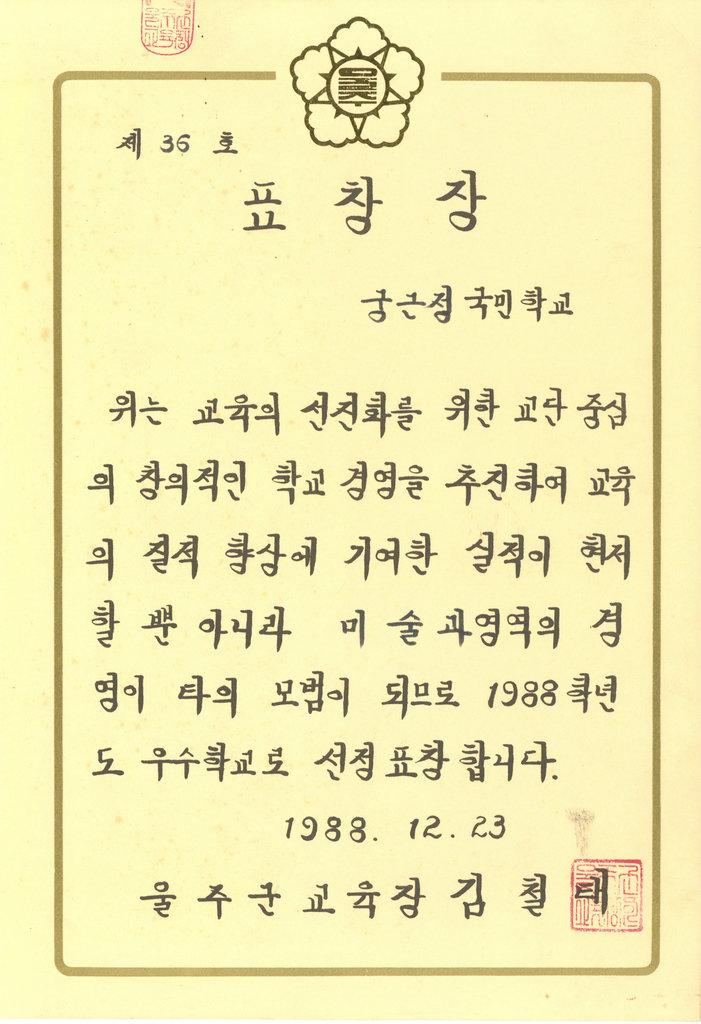 제 36 호
표 창 장
궁근정 국민학교
위는 교육의 선진화를 위한 교단 중심
의 창의적인 학교 경영을 추진하여 교육
의 질적 향상에 기여한 실적이 현저
할 뿐 아니라 미술과영역의 경
영이 타의 모범이 되므로 1988학년
도 우수학교로 선정 표창합니다.
1988. 12. 23
울주군교육장 김 철 태